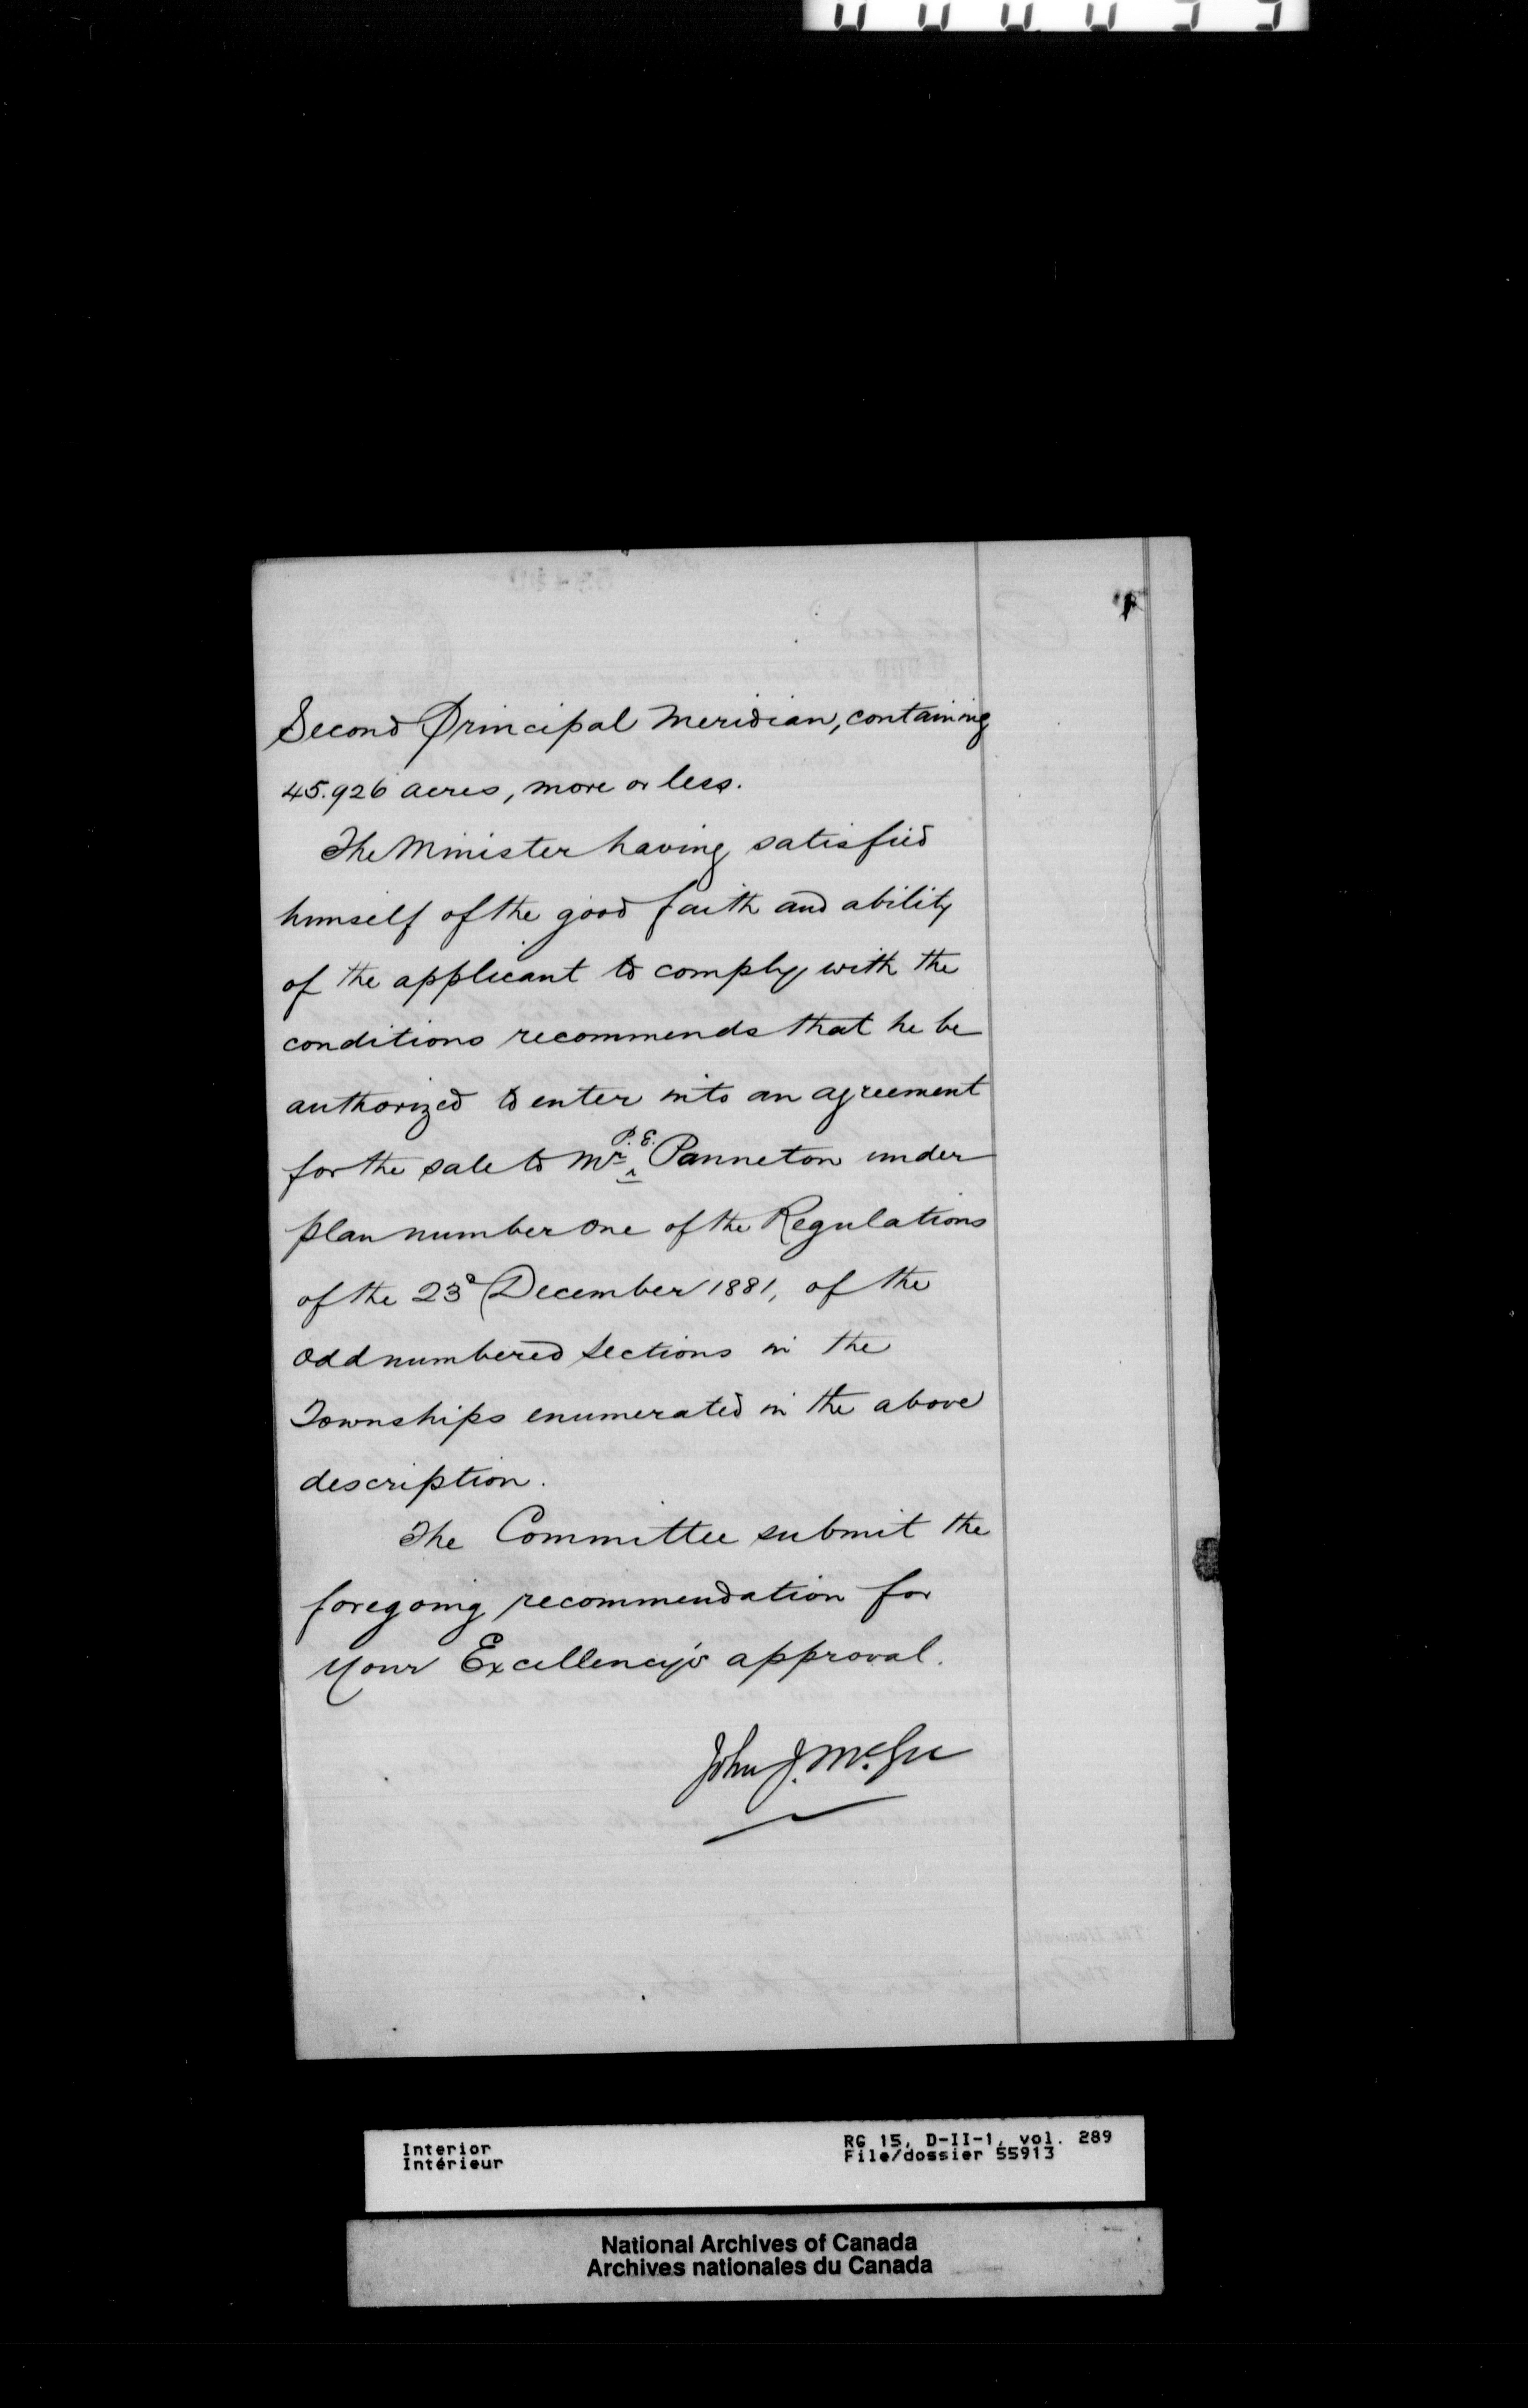 Second Principal Meridian, containing
45.926 acres, more or less.
The Minister having satisfied
himself of the good faith and ability
of the applicant to comply with the
conditions recommends that he be
authorized to enter into an agreement
for the sale to Mr. P. E. Panneton under
plan number one of the Regulations
of the 23d December 1881, of the
odd numbered Sections in the
Townships enumerated in the above
description.
The Committee submit the
foregoing recommendation for
Your Excellency's approval.
John J. McGee
Interior
Intérieur
RG 15, D-II-1, vol. 289
File/dossier 55913
National Archives of Canada
Archives nationales du Canada